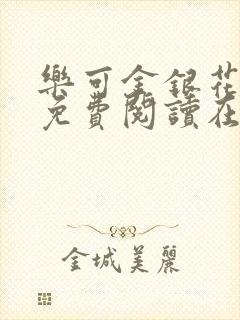 樂可金銀花
免費閱讀在
金城美麗